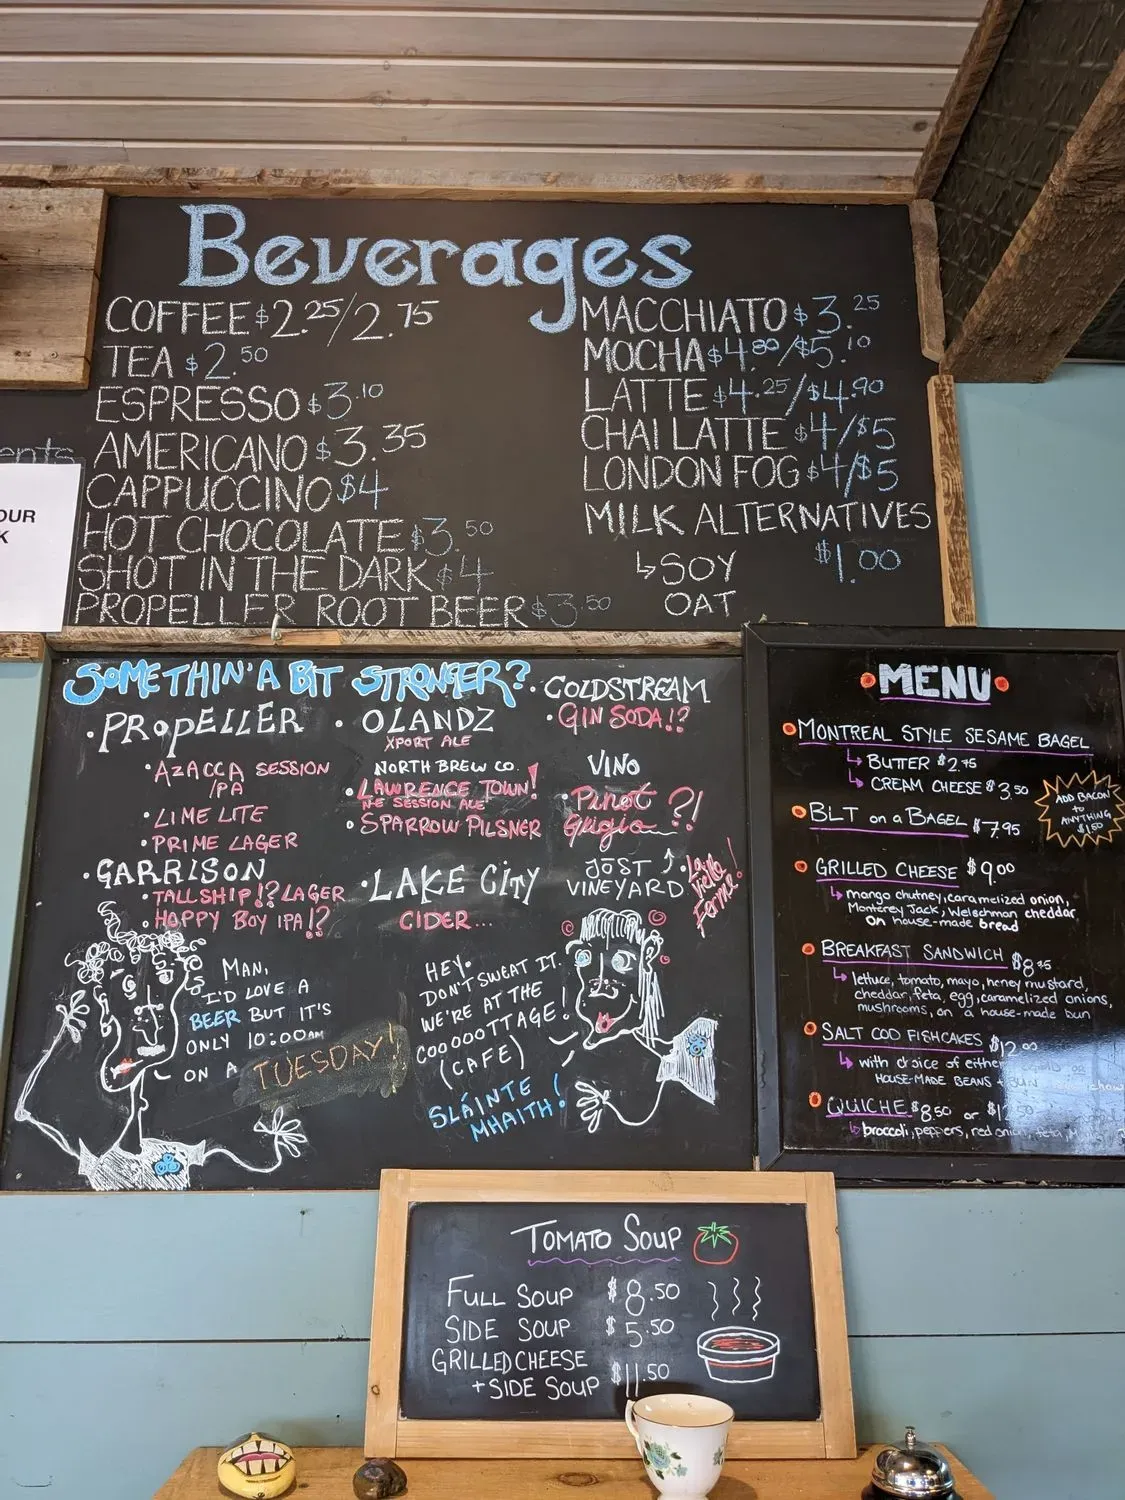 Beverages
COFFEE $2.25/2.75
TEA $2.50
ESPRESSO $3.10
AMERICANO $3.35
CAPPUCCINO $4
HOT CHOCOLATE $3.50
SHOT IN THE DARK $4
PROPELLER ROOT BEER $3.50
MACCHIATO $3.25
MOCHA $4.80/$5.10
LATTE $4.25/$4.90
CHAI LATTE $4/$5
LONDON FOG $4/$5
MILK ALTERNATIVES
$1.00
↳ SOY
OAT
ents
OUR
K
SOMETHIN' A BIT STRONGER?
• PROPELLER
• AZACCA SESSION
IPA
• LIME LITE
• PRIME LAGER
• GARRISON
• TALL SHIP!? LAGER
• HOPPY BOY IPA!?
• OLANDZ
XPORT ALE
NORTH BREW CO.
• LAWRENCE TOWN!
NE SESSION ALE
• SPARROW PILSNER
• LAKE CITY
CIDER...
• COLDSTREAM
• GIN SODA!?
VINO
• Pinot
Grigio ?!
JŌST
VINEYARD
• La
Vielle
Ferme!
MAN,
I'D LOVE A
BEER BUT IT'S
ONLY 10:00AM
ON A TUESDAY!
HEY.
DON'T SWEAT IT.
WE'RE AT THE
COOOOOTTAGE!
(CAFE)
SLÁINTE
MHAITH!
MENU
MONTREAL STYLE SESAME BAGEL
↳ BUTTER $2.95
↳ CREAM CHEESE $3.50
ADD BACON
to
ANYTHING
$1.50
BLT on a BAGEL $7.95
GRILLED CHEESE $9.00
↳ mango chutney, caramelized onion,
Monterey Jack, Welschman cheddar
on house-made bread
BREAKFAST SANDWICH $8.95
↳ lettuce, tomato, mayo, honey mustard,
cheddar, feta, egg, caramelized onions,
mushrooms, on a house-made bun
SALT COD FISHCAKES $12.00
↳ with choice of either
HOUSE-MADE BEANS + BUN chow
QUICHE $8.50 or $12.50
↳ broccoli, peppers, red onion, feta,
TOMATO SOUP
FULL SOUP $8.50
SIDE SOUP $5.50
GRILLED CHEESE
+ SIDE SOUP $11.50